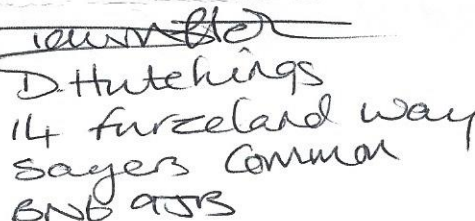 D. Hutchings
14 furzeland way
Sayers Common
BN6 9JB